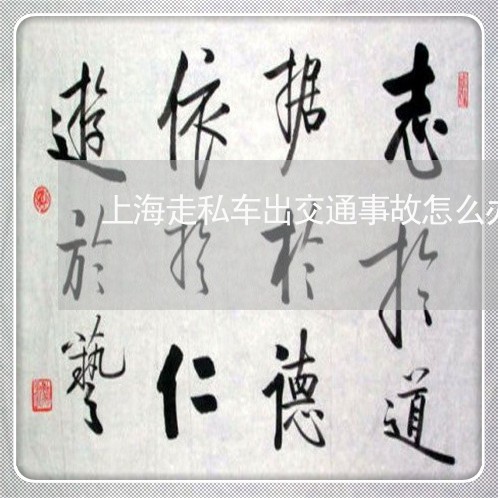 志扵道
据扵德
依扵仁
遊於藝
上海走私车出交通事故怎么